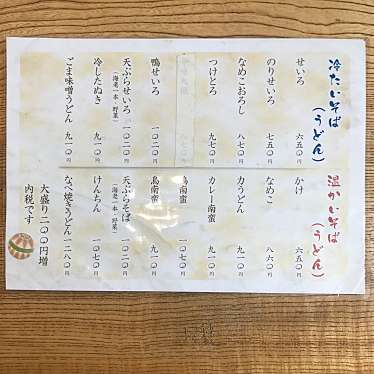 冷たいそば
(うどん)
せいろ 六五〇円
のりせいろ 七五〇円
なめこおろし 八七〇円
つけとろ 九七〇円
鴨せいろ 一〇二〇円
天ぷらせいろ 一〇二〇円
(海老一本・野菜)
冷したぬき 九一〇円
ごま味噌うどん 九一〇円
温かいそば
(うどん)
かけ 六五〇円
なめこ 八六〇円
力うどん 九一〇円
カレー南蛮 九一〇円
南蛮 一〇七〇円
鳥南蛮 九一〇円
天ぷらそば 一〇二〇円
(海老一本・野菜)
けんちん 一〇七〇円
なべ焼きうどん 一二八〇円
大盛り一〇〇円増
内税です